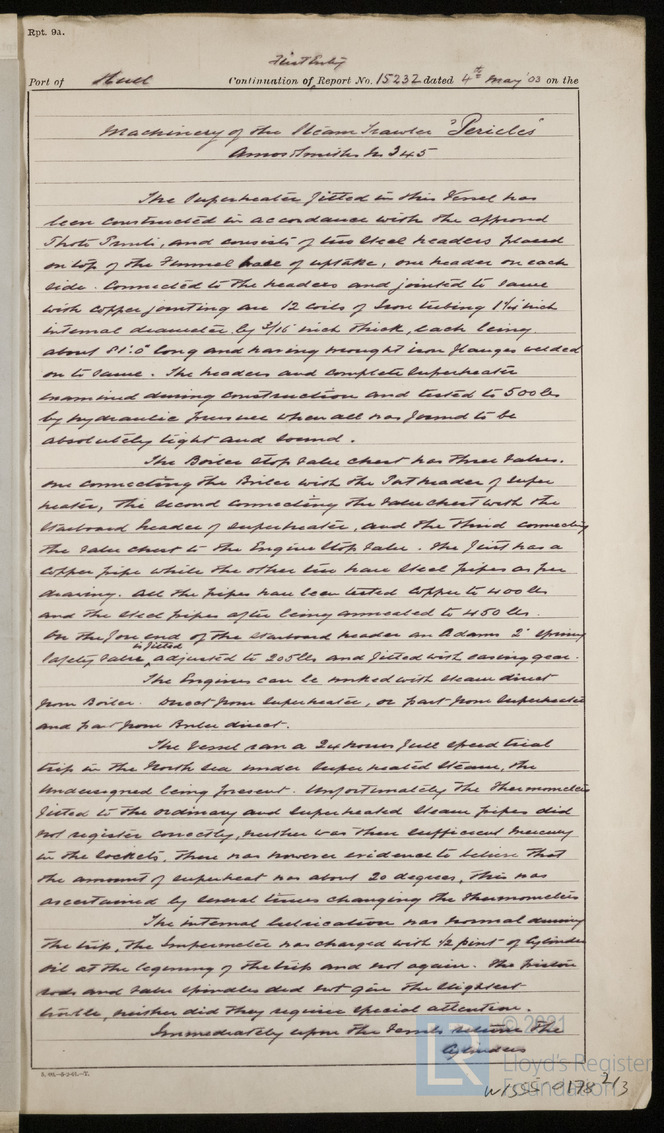 Rpt. 9a.
First Entry
Port of Hull Continuation of Report No. 15232 dated 4th May '03 on the
Machinery of the Steam Trawler "Pericles"
Amos Smith's No 345
The Superheater fitted in this Vessel has
been constructed in accordance with the approved
Photo Prints, and consists of two Steel headers placed
on top of the Funnel base of uptake, one header on each
side. Connected to the headers and jointed to same
with copper jointing are 12 coils of Iron tubing 1 1/4 inch
internal diameter by 3/16 inch thick, each being
about 81'.0" long and having wrought iron flanges welded
on to same. The headers and complete Superheater
examined during construction and tested to 500 lbs
by hydraulic pressure when all was found to be
absolutely tight and sound.
The Boiler Stop Valve chest has three valves.
One connecting the Boiler with the Port header of Super
heater, the second connecting the valve chest with the
Starboard header of Superheater, and the third connecting
the valve chest to the Engine Stop Valve. The first has a
copper pipe while the other two have Steel pipes as per
drawing. All the pipes have been tested Copper to 400 lbs
and the Steel pipes after being annealed to 450 lbs.
On the fore end of the Starboard header an Adams 2" spring
is fitted
Safety Valve, adjusted to 205 lbs and fitted with easing gear.
The Engines can be worked with steam direct
from Boiler. Direct from Superheater, or part from Superheater
and part from Boiler direct.
The Vessel ran a 24 hours full speed trial
trip in the North Sea under Superheated Steam, the
Undersigned being present. Unfortunately the Thermometers
fitted to the ordinary and Superheated Steam pipes did
not register correctly, neither was there sufficient mercury
in the sockets, there was however evidence to believe that
the amount of superheat was about 20 degrees, this was
ascertained by several times changing the thermometers
The internal lubrication was normal during
the trip, the Impermeator was charged with 1/2 pint of Cylinder
oil at the begining of the trip and not again. The piston
rods and valve spindles did not give the slightest
trouble, neither did they require special attention.
Immediately upon the Vessels return the
Cylinders
© 2021
LR
Lloyd's Register
Foundation
W1595-0178 2/3